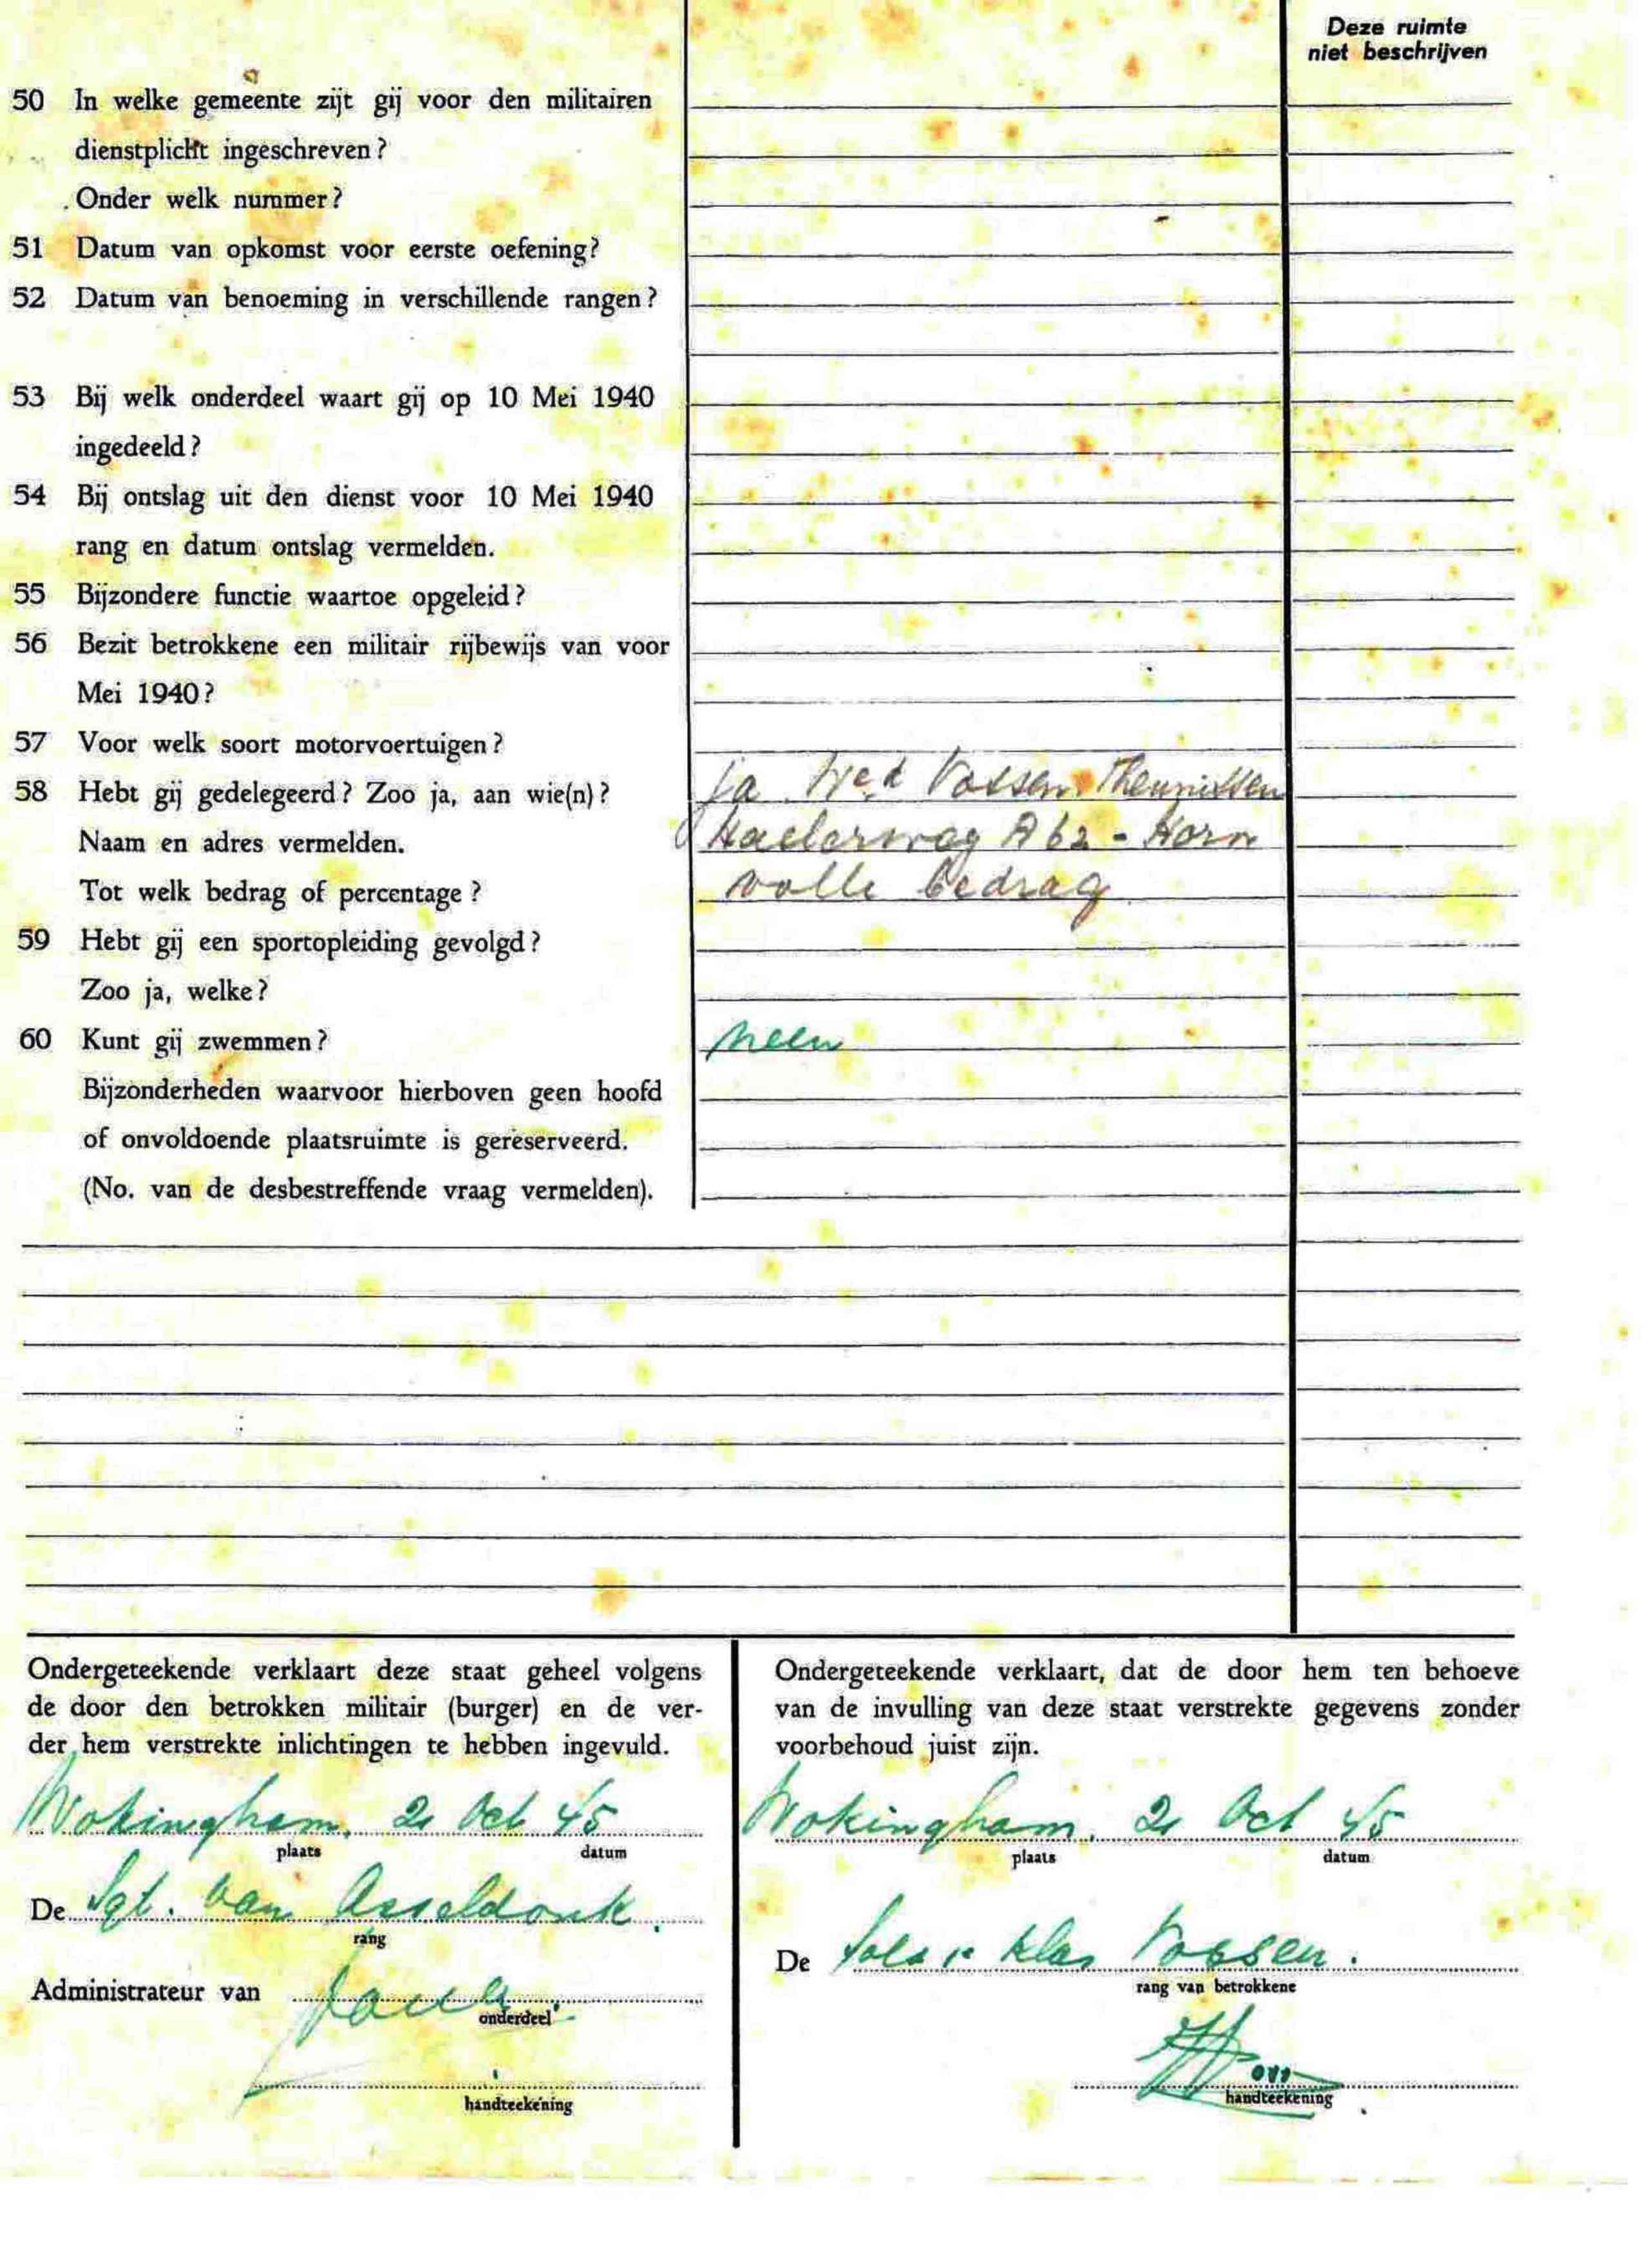 Deze ruimte
niet beschrijven
50 In welke gemeente zijt gij voor den militairen
dienstplicht ingeschreven?
Onder welk nummer?
51 Datum van opkomst voor eerste oefening?
52 Datum van benoeming in verschillende rangen?
53 Bij welk onderdeel waart gij op 10 Mei 1940
ingedeeld?
54 Bij ontslag uit den dienst voor 10 Mei 1940
rang en datum ontslag vermelden.
55 Bijzondere functie waartoe opgeleid?
56 Bezit betrokkene een militair rijbewijs van voor
Mei 1940?
57 Voor welk soort motorvoertuigen?
58 Hebt gij gedelegeerd? Zoo ja, aan wie(n)? ja Wed Vossen Theunissen
Naam en adres vermelden. Haelerweg A 62 - Horn
Tot welk bedrag of percentage? volle bedrag
59 Hebt gij een sportopleiding gevolgd?
Zoo ja, welke?
60 Kunt gij zwemmen? neen
Bijzonderheden waarvoor hierboven geen hoofd
of onvoldoende plaatsruimte is gereserveerd.
(No. van de desbestreffende vraag vermelden).
Ondergeteekende verklaart deze staat geheel volgens
de door den betrokken militair (burger) en de ver-
der hem verstrekte inlichtingen te hebben ingevuld.
Wokingham, 2 Oct 45
plaats datum
De Sgt. van Asseldonk.
rang
Administrateur van
onderdeel
handteekening
Ondergeteekende verklaart, dat de door hem ten behoeve
van de invulling van deze staat verstrekte gegevens zonder
voorbehoud juist zijn.
Wokingham, 2 Oct 45
plaats datum
De Sold 1e klas Vossen.
rang van betrokkene
handteekening